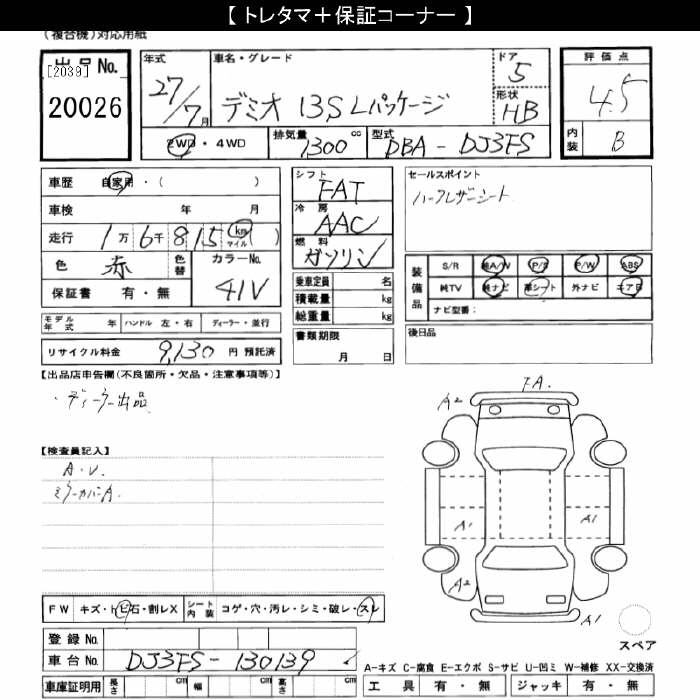 【 トレタマ＋保証コーナー 】
(複合機)対応用紙
出品No.
[2039]
20026
年式
27/7月
車名・グレード
デミオ 13S Lパッケージ
ドア
5
形状
HB
評価点
4.5
2WD・4WD
排気量
1300 cc
型式
DBA - DJ3FS
内装
B
車歴 自家用・( )
車検 年 月
走行 1万 6千 8 1 5 km マイル ( )
色 赤 色替 カラーNo. 41V
保証書 有・無
シフト
FAT
冷房
AAC
燃料
ガソリン
乗車定員 名
積載量 kg
総重量 kg
書類期限
月 日
セールスポイント
ハーフレザーシート
装備品
S/R 純A/W P/S P/W ABS
純TV 純ナビ 革シート 外ナビ エアB
ナビ型番:
後日品
モデル年式 年 ハンドル 左・右 ディーラー・並行
リサイクル料金 9,130 円 預託済
【出品店申告欄(不良箇所・欠品・注意事項等)】
・ディーラー出品
【検査員記入】
A・U
ミラーカバーA.
FA.
A2
A1
A1
A2
A1
スペア
FW キズ・トビ石・割レX シート内装 コゲ・穴・汚レ・シミ・破レ・スレ
登録 No.
車台 No. DJ3FS - 130139
車庫証明用 長さ cm 幅 cm 高さ cm
A−キズ C−腐食 E−エクボ S−サビ U−凹ミ W−補修 XX−交換済
工具 有・無 ジャッキ 有・無